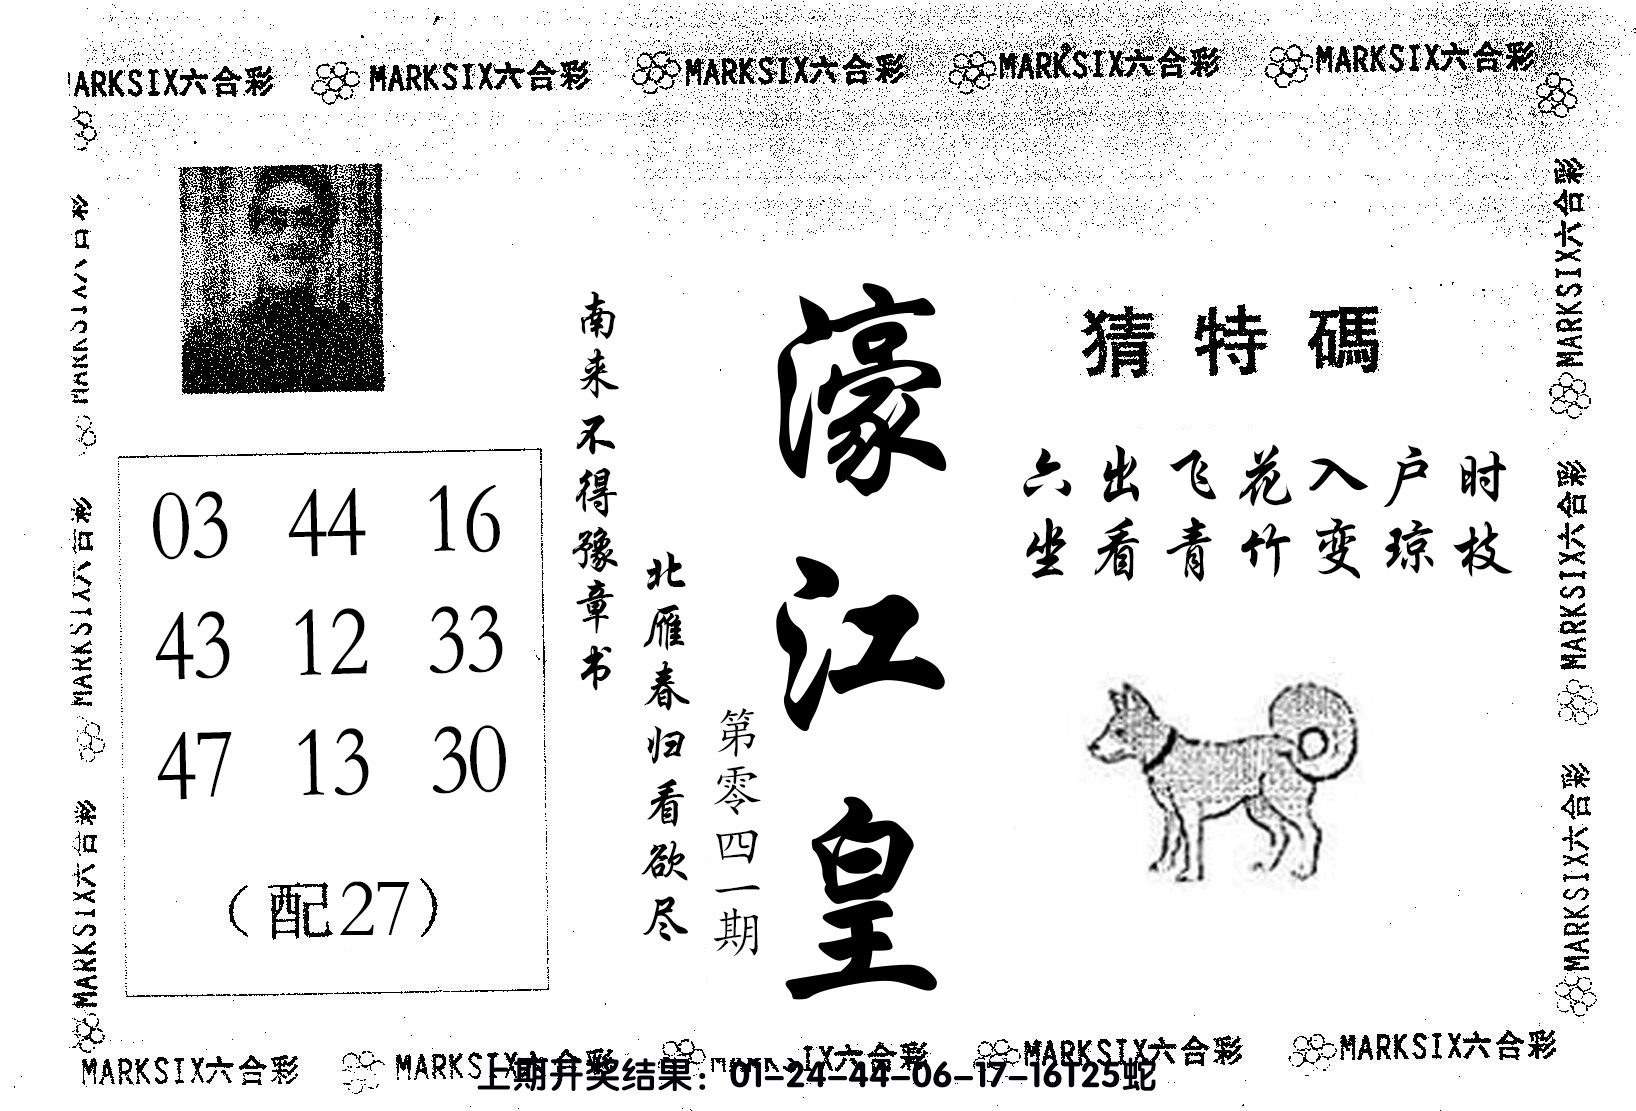 MARKSIX六合彩 MARKSIX六合彩 MARKSIX六合彩 MARKSIX六合彩 MARKSIX六合彩
猜特碼
六出飞花入户时
坐看青竹变琼枝
濠江皇
第零四一期
北雁春归看欲尽
南来不得豫章书
03 44 16
43 12 33
47 13 30
（配27）
MARKSIX六合彩
MARKSIX六合彩
MARKSIX六合彩
MARKSIX六合彩
MARKSIX六合彩
MARKSIX六合彩
MARKSIX六合彩 MARKSIX六合彩 MARKSIX六合彩 MARKSIX六合彩 MARKSIX六合彩
上期开奖结果：01-24-44-06-17-16T25蛇